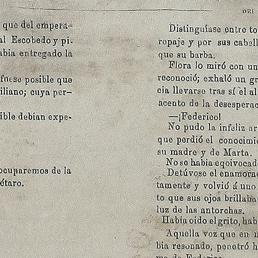 que del empera-
al Escobedo y pi-
abia entregado la
fuese posible que
iliano; cuya per-
ible debian expe-
ocuparemos de la
étaro.
Distinguíase entre to
ropaje y por sus cabell
que su barba.
Flora lo miró con un
reconoció; exhaló un gr
cia llevarse tras sí el al
acento de la desespera
—¡Federico!
No pudo la infeliz ar
que perdió el conocimi
su madre y de Marta.
No se habia eqivocado
Detúvose el enamora
tamente y volvió á uno
to que sus ojos brillaba
luz de las antorchas.
Habia oido el grito, hab
Aquella voz que en u
bia resonado, penetró h